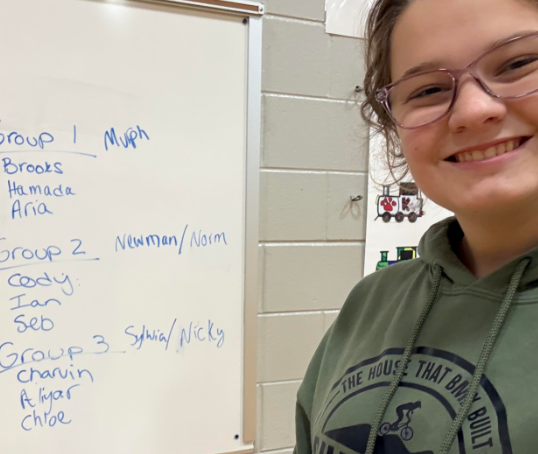 Group 1 Muph
Brooks
Hamada
Aria
Group 2 Newman/Norm
Cody
Ian
Seb
Group 3 Sylvia/Nicky
Charvin
Aliyar
Chloe
K
THE HOUSE THAT BMX BUILT